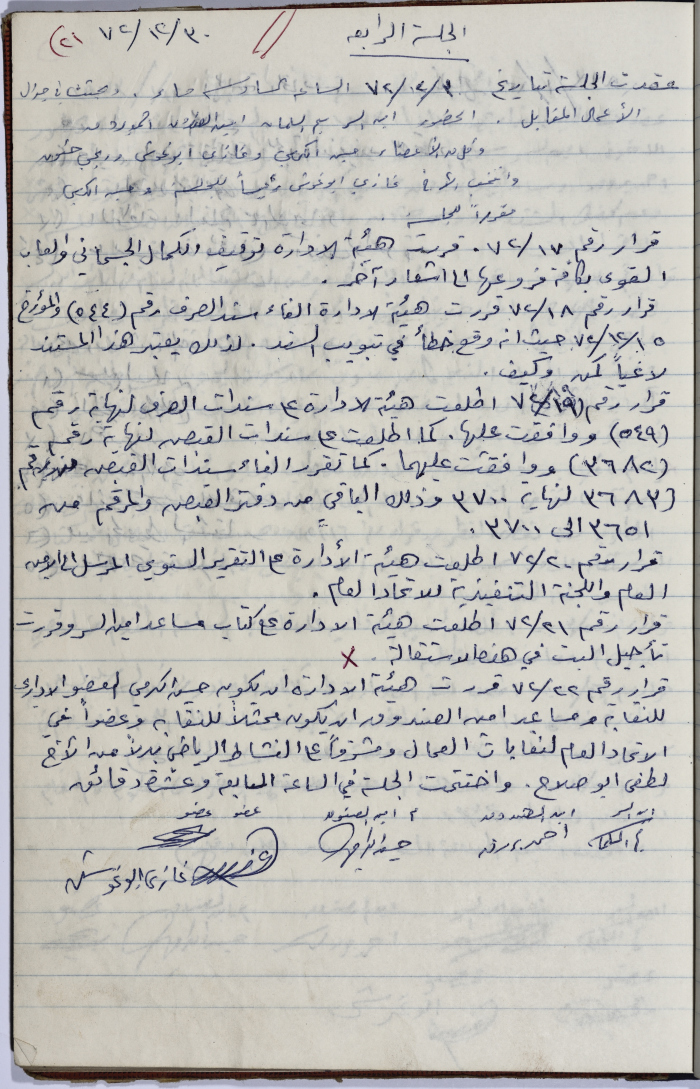 الجلسة الرابعه ٧٢/١٢/٣٠ (٢١
عقدت الجلسة بتاريخ ٧٢/١٢/٣٠ الساعة السادسة مساء . وبحثت في جدول
الأعمال المقابل . الحضور امين السر السلمان امين الصندوق احمد
وكل من الأعضاء حسن الكرمي وغازي ابوغوش وربحي
وانتخب الأخ غازي ابوغوش رئيساً للجلسة و حسن الكرمي
مقرراً للجلسة .
قرار رقم ٧٢/١٧ . قررت هيئة الادارة توقيف الكمال الجسماني والعاب
القوى بكافة فروعها الى اشعار آخر .
قرار رقم ٧٢/١٨ قررت هيئة الادارة الغاء سند الصرف رقم (٥٤٤) والمؤرخ
٧٢/١٢/١٥ حيث انه وقع خطأ في تبويب السند . لذلك يعتبر هذا المستند
لاغياً لمن وكيف .
قرار رقم (٧٢/١٩) اطلعت هيئة الادارة ع سندات الصرف لنهاية رقم
(٥٤٩) ووافقت عليها . كما اطلعت ع سندات القبض لنهاية رقم
(٣٦٨٢) ووافقت عليهما . كما تقرر الغاء سندات القبض من رقم
(٣٦٨٣ لنهاية ٣٧٠٠ وذلك الباقي من دفتر القبض والمرقم من
٣٦٥١ الى ٣٧٠٠ .
قرار رقم ٧٢/٢٠ اطلعت هيئة الأدارة ع التقرير السنوي المرسل الى الامين
العام واللجنة التنفيذية للاتحاد العام .
قرار رقم ٧٢/٢١ اطلعت هيئة الادارة ع كتاب مساعد امين السر وقررت
تأجيل البت في هذه الاستقالة . x
قرار رقم ٧٢/٢٢ قررت هيئة الادارة ان يكون حسن الكرمي العضو الاداري
للنقابة ومساعد امين الصندوق ان يكون ممثلاً للنقابة وعضواً في
الاتحاد العام لنقابات العمال ومشرفاً ع النشاط الرياضي بدلاً من الأخ
لطفي ابو صلاح . واختتمت الجلسة في الساعة السابعة وعشرة دقائق
امين السر امين الصندوق م امين الصندوق عضو عضو
احمد
غازي ابوغوش